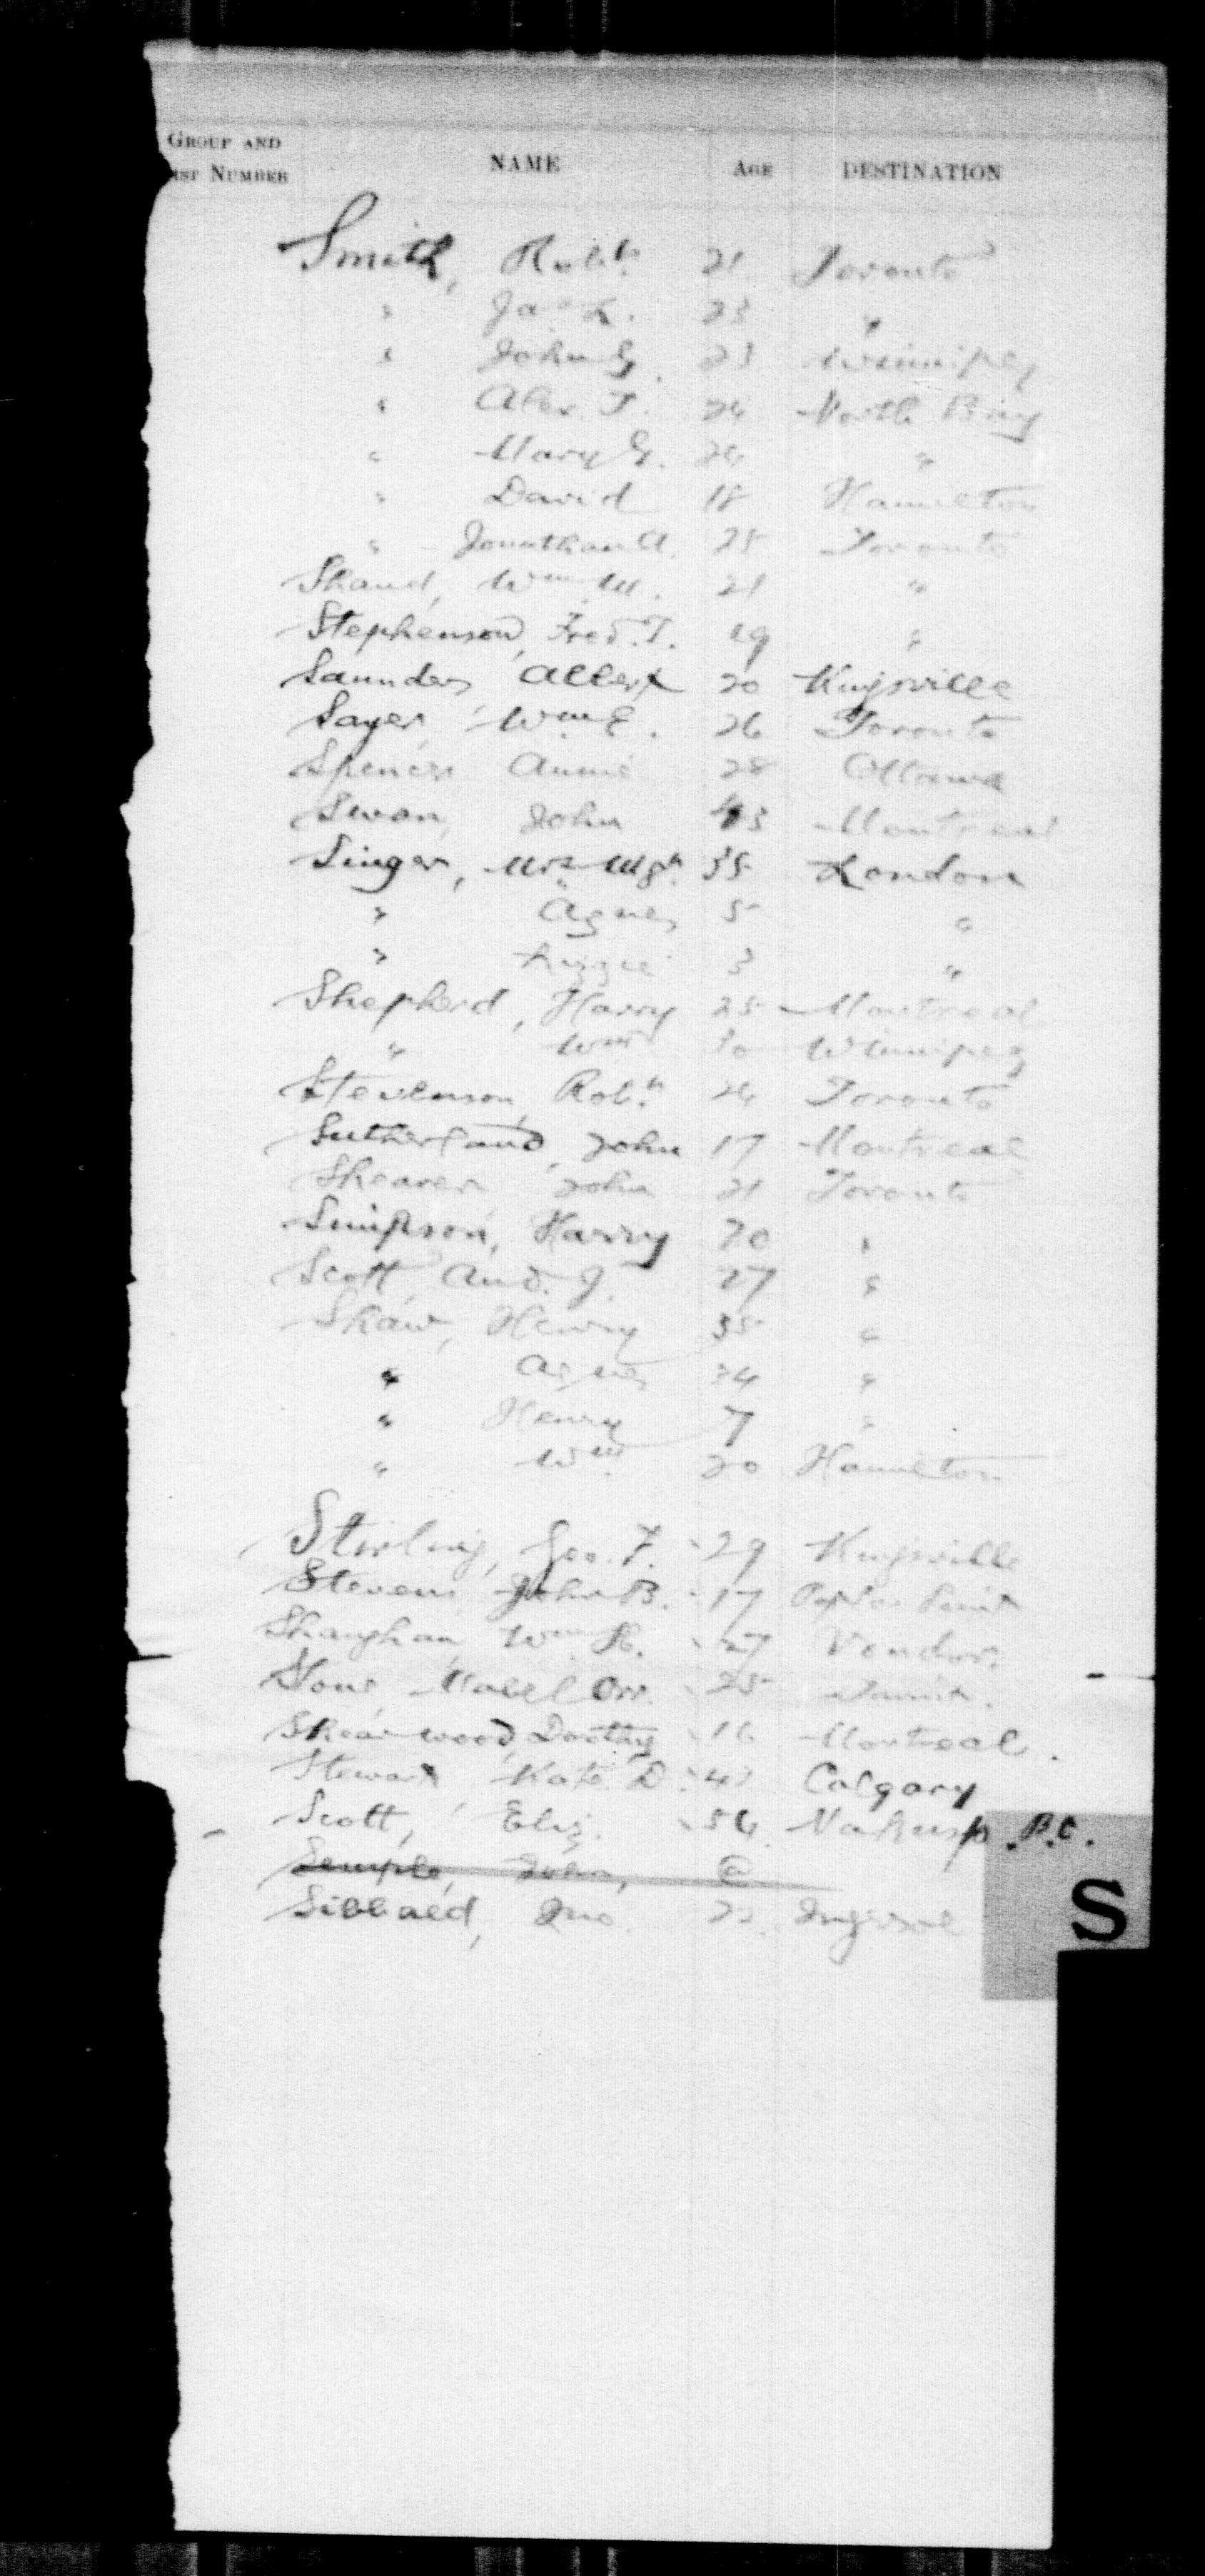 GROUP AND NAME AGE DESTINATION
IST NUMBER
Smith, Robt. 21 Toronto
" Jas. L. 23 "
" John G. 23 Winnipeg
" Alex. T. 24 North Bay
" Mary G. 24 "
" David 18 Hamilton
" Jonathan A. 25 Toronto
Shand, Wm. M. 21 "
Stephenson, Fred. T. 19 "
Saunders, Albert 20 Kingsville
Sayer, Wm. E. 26 Toronto
Spencer Annie 28 Ottawa
Swan, John 43 Montreal
Singer, Mrs Mgt. 35 London
" Agnes 5 "
" Lizzie 3 "
Shepherd, Harry 25 Montreal
" Wm 30 Winnipeg
Stevenson, Robt. 24 Toronto
Sutherland, John 17 Montreal
Shearer John 21 Toronto
Simpson, Harry 20 "
Scott, And. J. 27 "
Shaw, Henry 35 "
" Agnes 34 "
" Henry 7 "
" Wm. 20 Hamilton
Stirling, Geo. F. 29 Kingsville
Stevens John B. 17 Point
Shaughan, Wm. H. 27
Mabel Orr. 25
Shearwood, Dorothy 16 Montreal.
Stewart, Kate D. Calgary
Scott, Eliz. 54 Nakusp. B.C.
Semple, John,
Sibbald, Jno. Ingersol
S